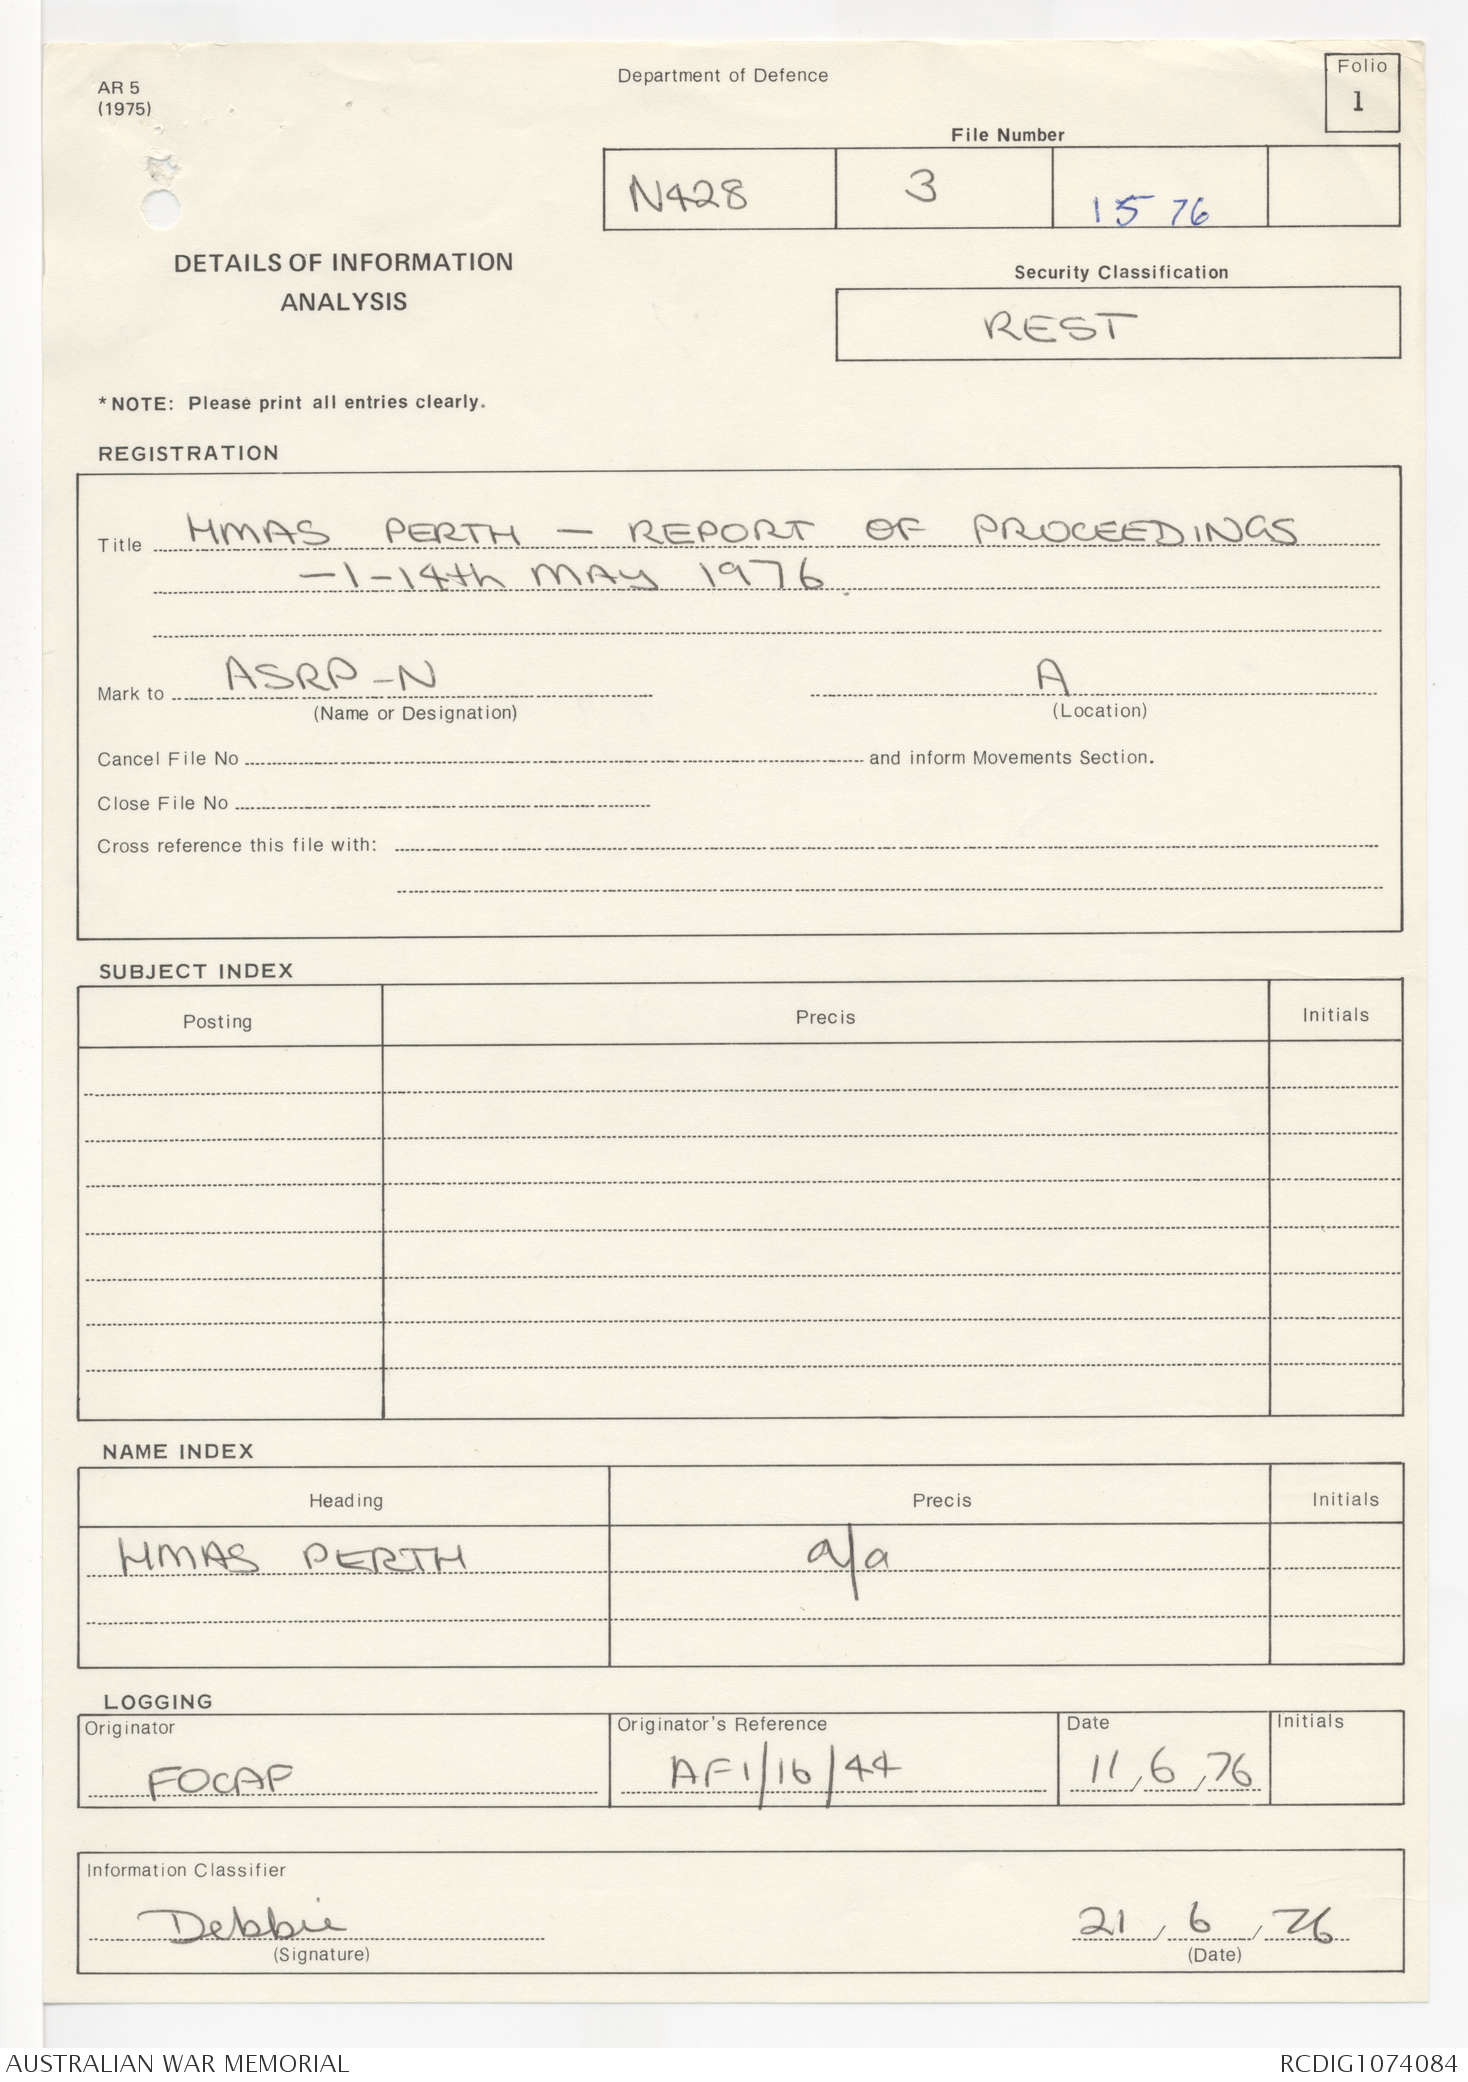 AR 5
(1975)
Department of Defence
Folio
1
File Number
N428 3 15 76
DETAILS OF INFORMATION
ANALYSIS
Security Classification
REST
*NOTE: Please print all entries clearly.
REGISTRATION
Title HMAS PERTH — REPORT OF PROCEEDINGS
-1-14th MAY 1976
Mark to ASRP-N A
(Name or Designation) (Location)
Cancel File No and inform Movements Section.
Close File No
Cross reference this file with:
SUBJECT INDEX
Posting Precis Initials
NAME INDEX
Heading Precis Initials
HMAS PERTH a/a
LOGGING
Originator Originator's Reference Date Initials
FOCAF AF1/16/44 11,6,76
Information Classifier
Debbie 21, 6, 76
(Signature) (Date)
AUSTRALIAN WAR MEMORIAL RCDIG1074084